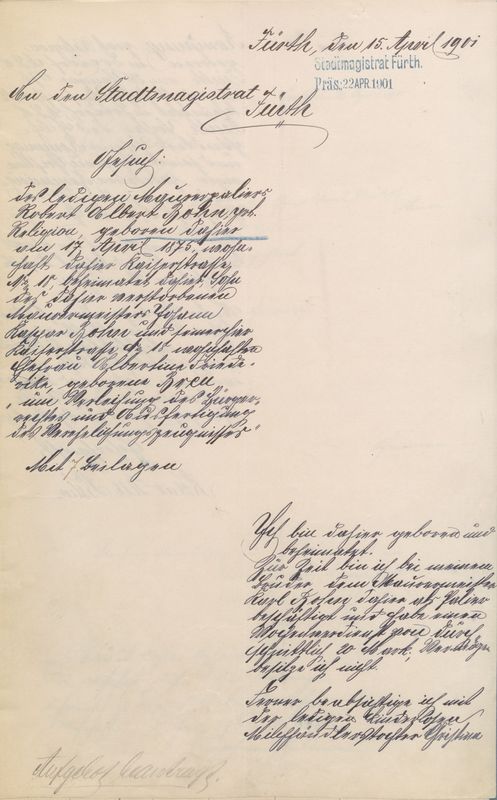 Fürth, den 15. April 1901
Stadtmagistrat Fürth.
Präs: 22 APR. 1901
An den Stadtmagistrat
Fürth
Gesuch:
des ledigen Maurerpaliers
Robert Albert Bohn, prot.
Religion, geboren dahier
am 17 April 1875, wohn-
haft dahier Kaiserstraße
No 18, beheimatet dahier, Sohn
des dahier verstorbenen
Maurermeisters Johann
Kaspar Bohn und seiner hier
Kaiserstraße No 18 wohnhaften
Ehefrau Albertine Friede-
rike, geborene
"um Verleihung des Bürger-
rechtes und Ausfertigung
des Verehelichungszeugnisses"
Mit 7 Beilagen
Ich bin dahier geboren und
beheimatet.
Zur Zeit bin ich bei meinem
Bruder dem Maurermeister
Karl Bohn dahier als Palier
beschäftigt und habe einen
Wochenverdienst von durch
schnittlich 20 Mark; Vermögen
besitze ich nicht.
Ferner beabsichtige ich mit
der ledigen kinderlosen
Milchhändlerstochter Christina
Aufgebot beantragt.